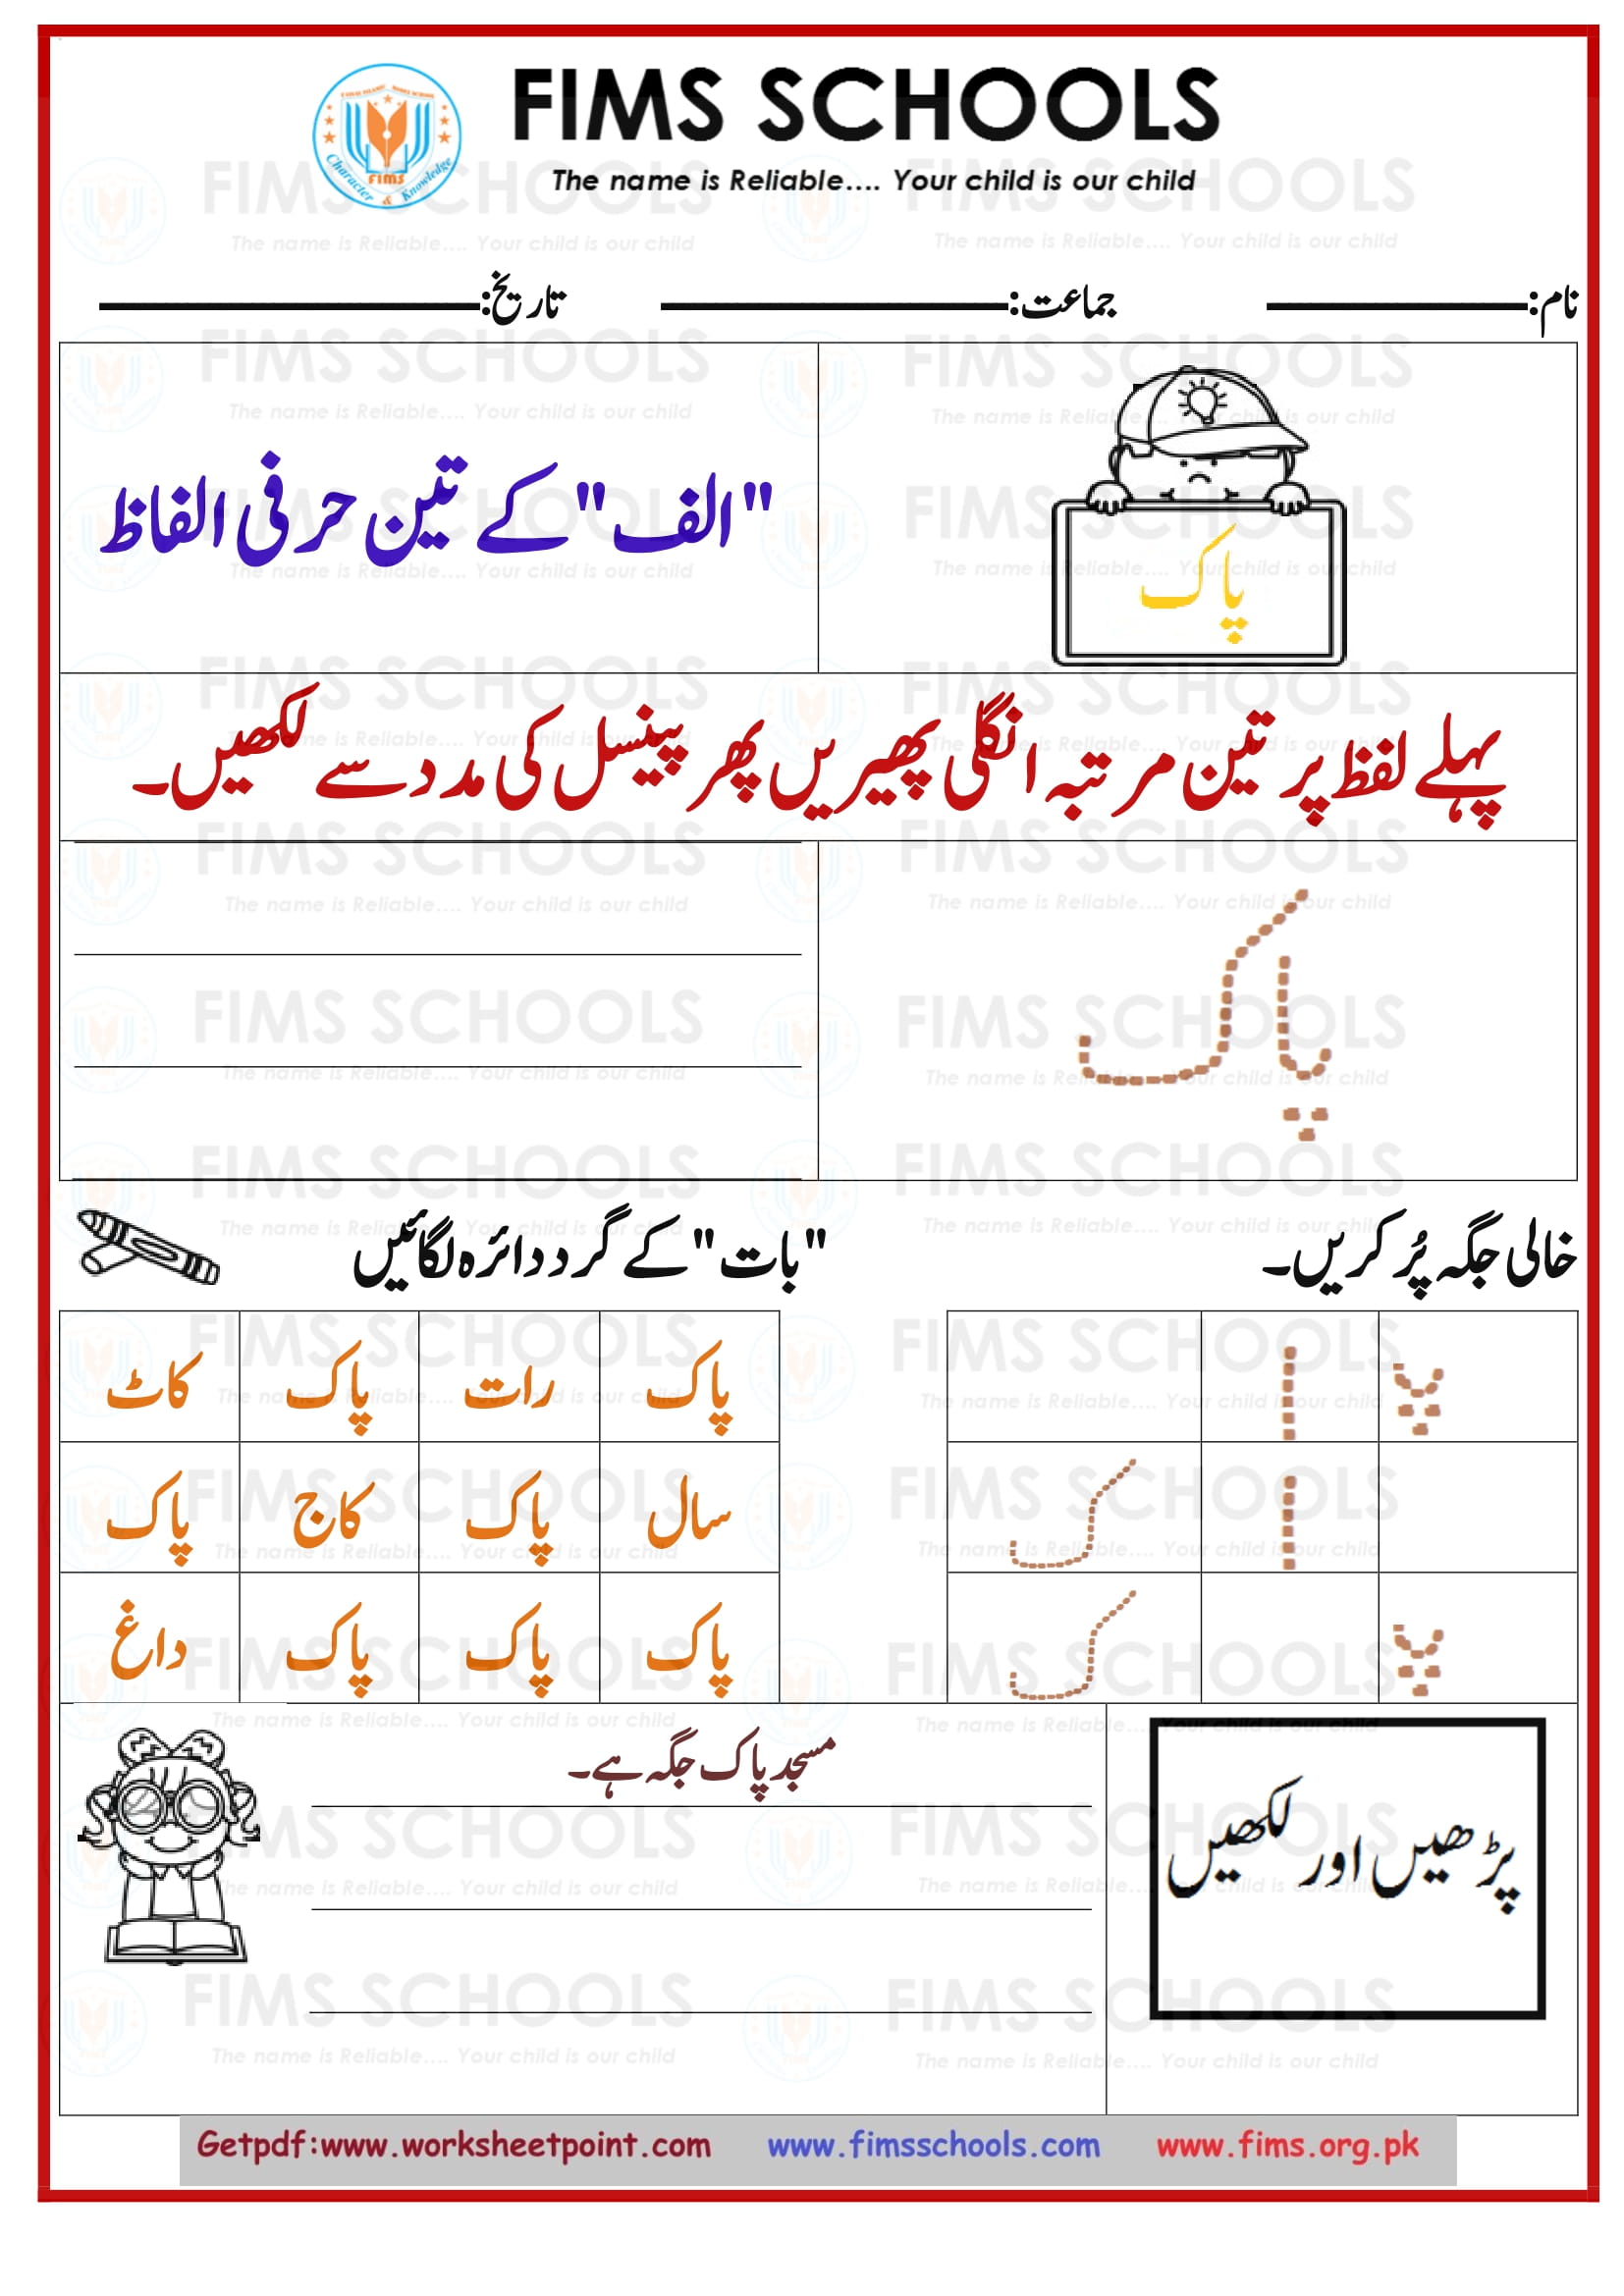 FIMS SCHOOLS
The name is Reliable.... Your child is our child
Character & Knowledge
FIMS
نام: جماعت: تاریخ:
پاک
"الف" کے تین حرفی الفاظ
پہلے لفظ پر تین مرتبہ انگلی پھیریں پھر پینسل کی مدد سے لکھیں۔
پاک
خالی جگہ پُر کریں۔
"بات" کے گرد دائرہ لگائیں
پ ا
ا ک
پ ک
پاک رات پاک کاٹ
سال پاک کاج پاک
پاک پاک پاک داغ
پڑھیں اور لکھیں
مسجد پاک جگہ ہے۔
Getpdf:www.worksheetpoint.com www.fimsschools.com www.fims.org.pk